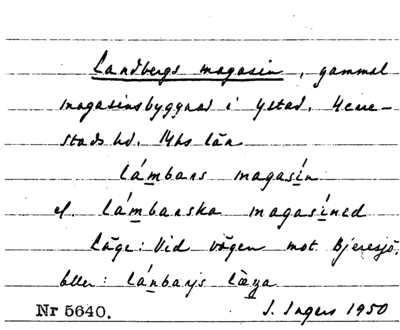 Landbergs magasin, gammal
magasinsbyggnad i Ystad. 
stads hd. Mhs län
lámbars magasín
el. lámbarska magasíned
Läge: Vid vägen mot Bjeresjö.
eller: lánbarjs
Nr 5640. I. Ingers 1950